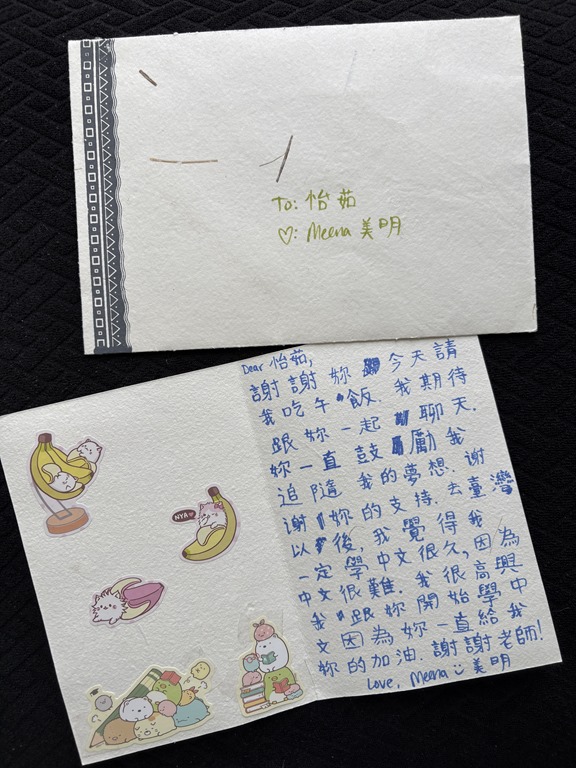 To: 怡茹
♡: Meena 美明
Dear 怡茹,
謝謝妳 今天請
我吃午飯. 我期待
跟妳一起 聊天.
妳一直鼓勵我
追隨我的夢想. 謝
谢妳的支持. 去臺灣
以後, 我覺得我
一定學中文很久, 因為
中文很難. 我很高興
我跟妳開始學中
文因為妳一直給我
妳的加油. 謝謝老師!
Love, Meena 美明
NYA